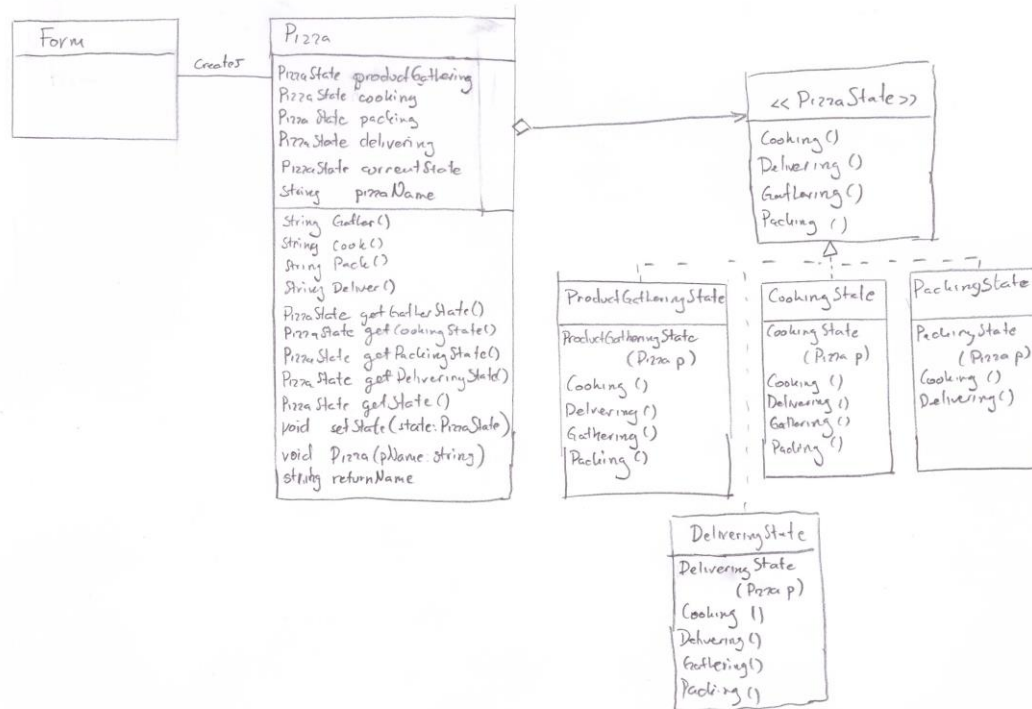 Form
creates
Pizza
PizzaState productGathering
PizzaState cooking
PizzaState packing
PizzaState delivering
PizzaState currentState
String pizzaName
String Gather()
String Cook()
String Pack()
String Deliver()
PizzaState getGatherState()
PizzaState getCookingState()
PizzaState getPackingState()
PizzaState getDeliveringState()
PizzaState getState()
void setState(state:PizzaState)
void Pizza(pName:string)
string returnName
<<PizzaState>>
Cooking()
Delivering()
Gathering()
Packing()
ProductGatheringState
ProductGatheringState
(Pizza p)
Cooking()
Delivering()
Gathering()
Packing()
CookingState
CookingState
(Pizza p)
Cooking()
Delivering()
Gathering()
Packing()
PackingState
PackingState
(Pizza p)
Cooking()
Delivering()
DeliveringState
DeliveringState
(Pizza p)
Cooking()
Delivering()
Gathering()
Packing()